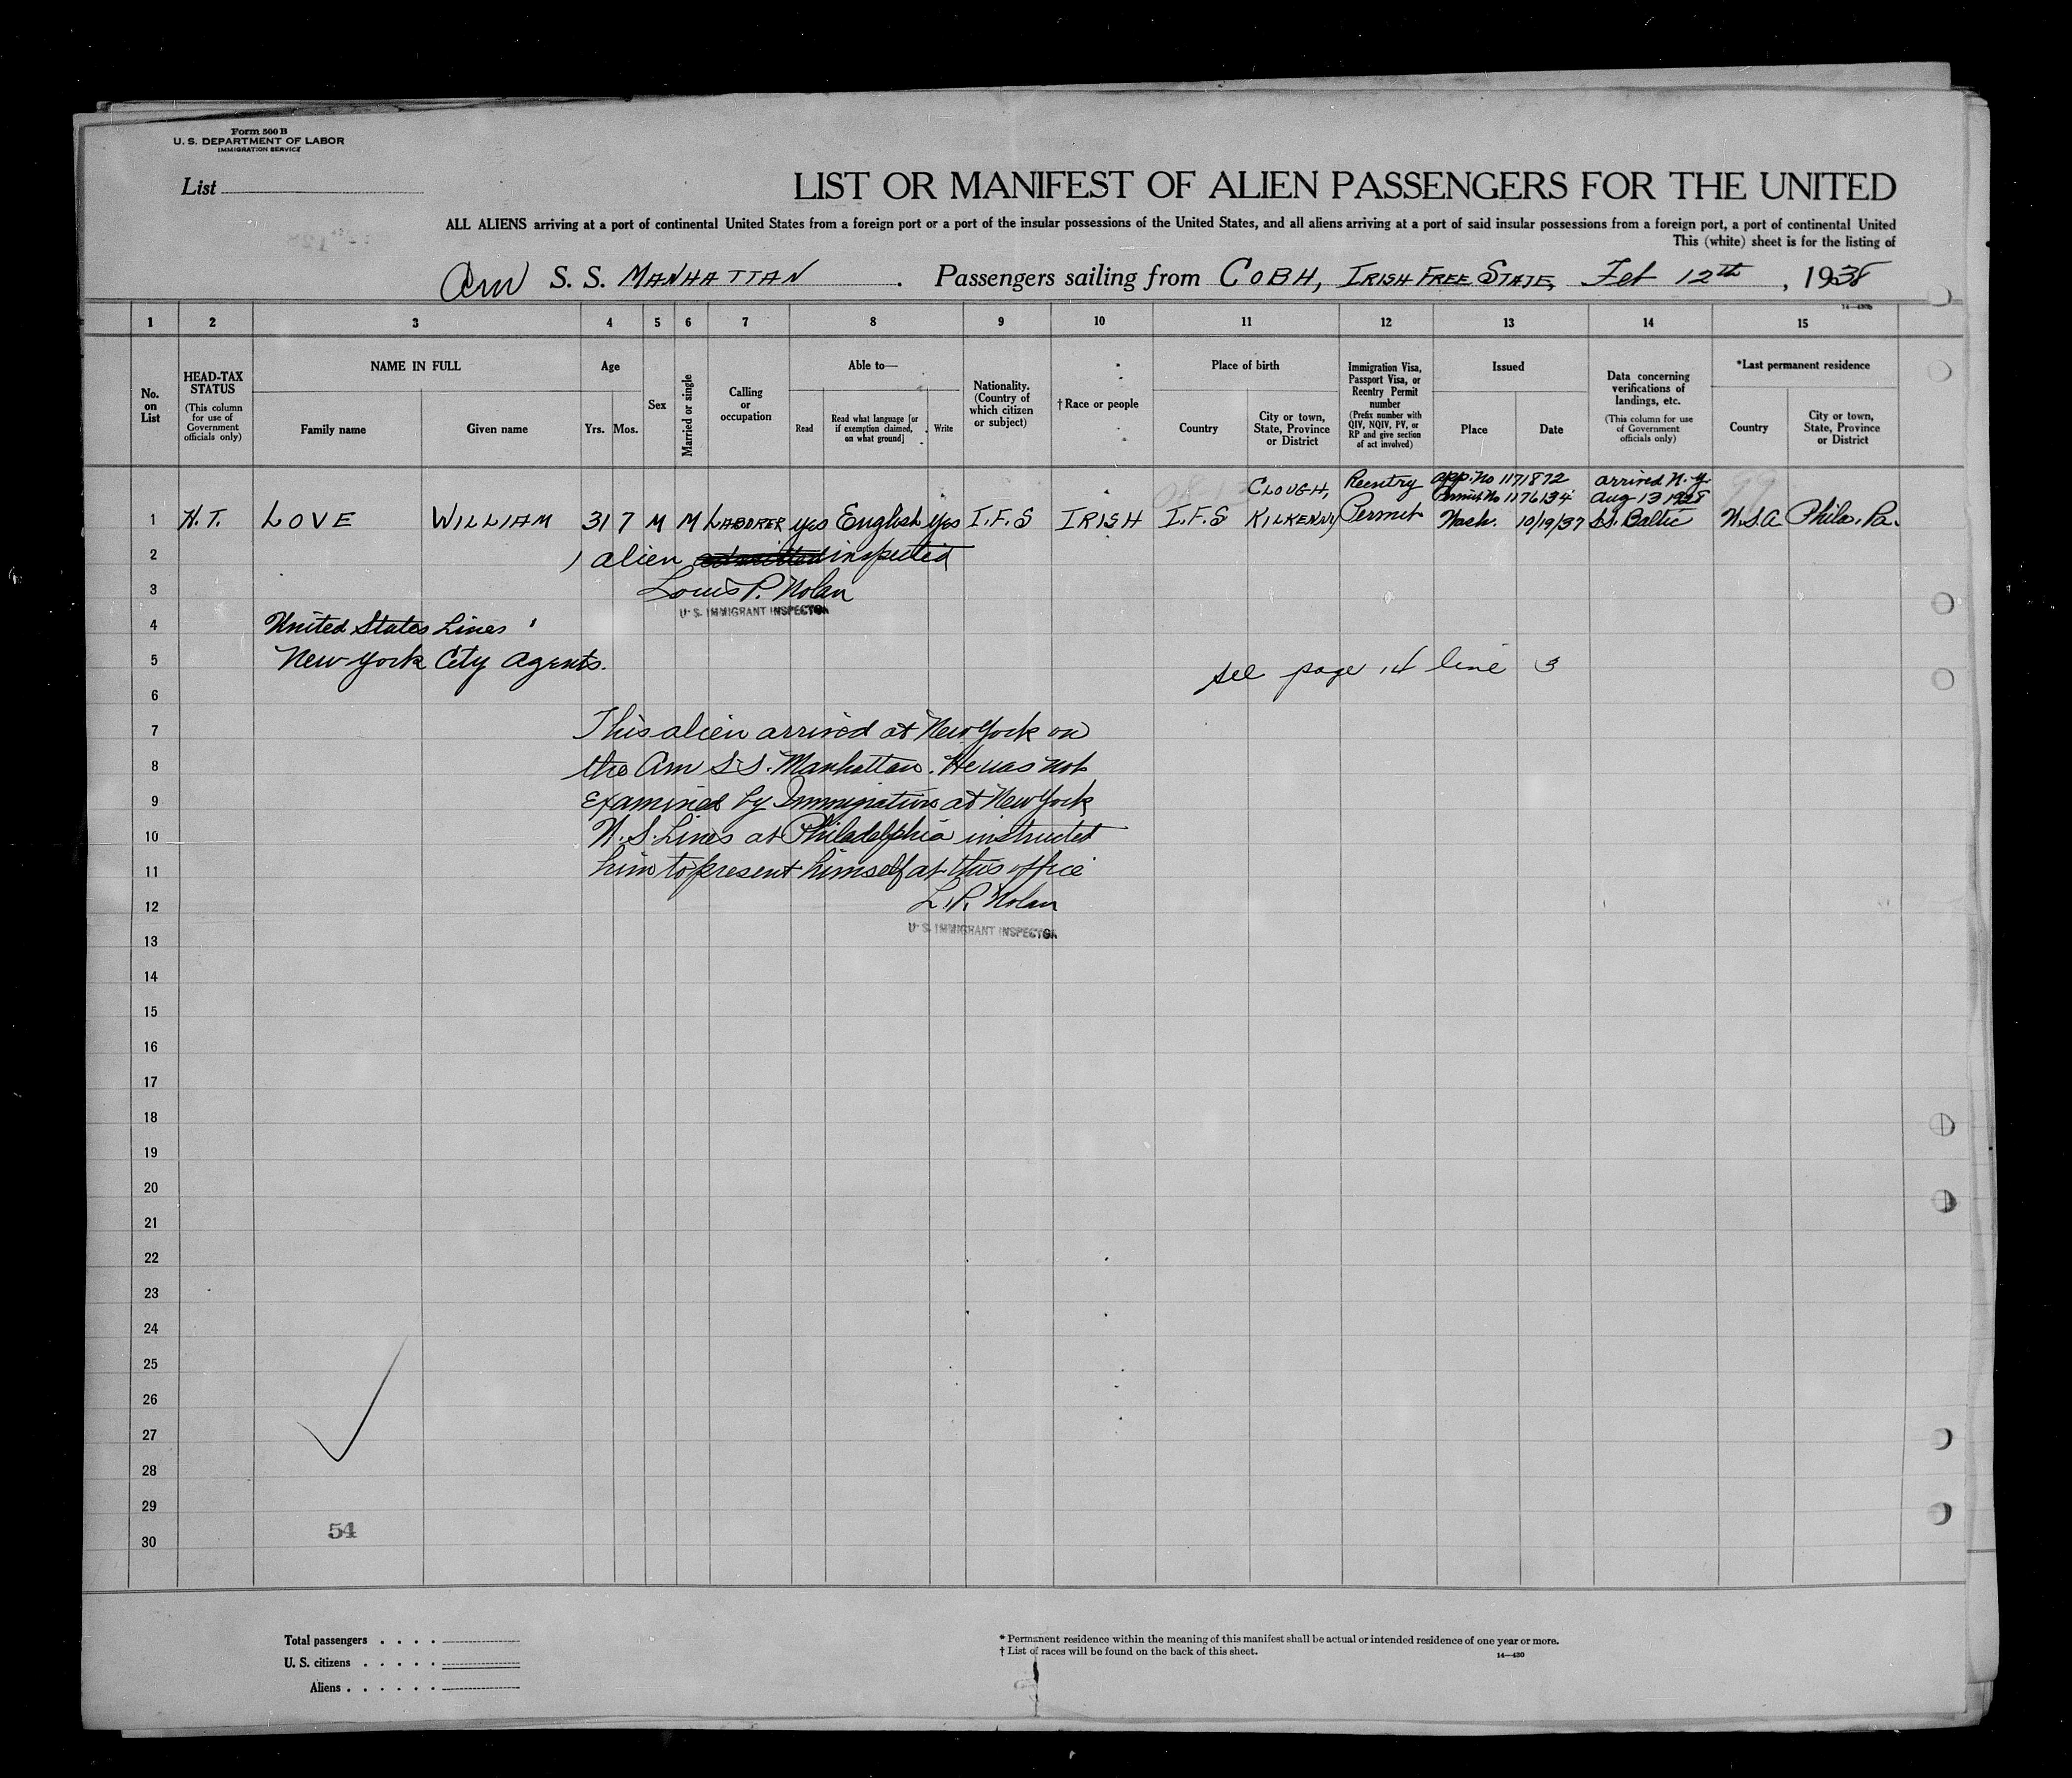 Form 500 B
U. S. DEPARTMENT OF LABOR
IMMIGRATION SERVICE
List
LIST OR MANIFEST OF ALIEN PASSENGERS FOR THE UNITED
ALL ALIENS arriving at a port of continental United States from a foreign port or a port of the insular possessions of the United States, and all aliens arriving at a port of said insular possessions from a foreign port, a port of continental United
This (white) sheet is for the listing of
Am S. S. MANHATTAN . Passengers sailing from COBH, IRISH FREE STATE, Feb 12th, 1938
14—430b
1 2 3 4 5 6 7 8 9 10 11 12 13 14 15
No. on List
HEAD-TAX STATUS (This column for use of Government officials only)
NAME IN FULL
Family name
Given name
Age
Yrs. Mos.
Sex
Married or single
Calling or occupation
Able to—
Read
Read what language [or if exemption claimed, on what ground]
Write
Nationality. (Country of which citizen or subject)
†Race or people
Place of birth
Country
City or town, State, Province or District
Immigration Visa, Passport Visa, or Reentry Permit number (Prefix number with QIV, NQIV, PV, or RP and give section of act involved)
Issued
Place
Date
Data concerning verifications of landings, etc. (This column for use of Government officials only)
*Last permanent residence
Country
City or town, State, Province or District
CLOUGH, Reentry app. No 1171872 arrived N.Y.
Permit No 1176134 Aug 13 1928
1 H.T. LOVE WILLIAM 31 7 M M LABORER yes English yes I.F.S IRISH I.F.S KILKENNY Permit Wash. 10/19/37 SS. Baltic U.S.A Phila. Pa.
2 1 alien admitted inspected
3 Louis P. Nolan
U. S. IMMIGRANT INSPECTOR
4 United States Lines
5 New York City Agents.
see page 14 line 3
6
7 This alien arrived at New York on
8 the Am S.S. Manhattan. He was not
9 examined by Immigration at New York
10 U.S. Lines at Philadelphia instructed
11 him to present himself at this office
12 L.P. Nolan
U. S. IMMIGRANT INSPECTOR
13
14
15
16
17
18
19
20
21
22
23
24
25
26
27
28
29
54
30
Total passengers . . . .
U. S. citizens . . . . .
Aliens . . . . . .
* Permanent residence within the meaning of this manifest shall be actual or intended residence of one year or more.
† List of races will be found on the back of this sheet.
14—430